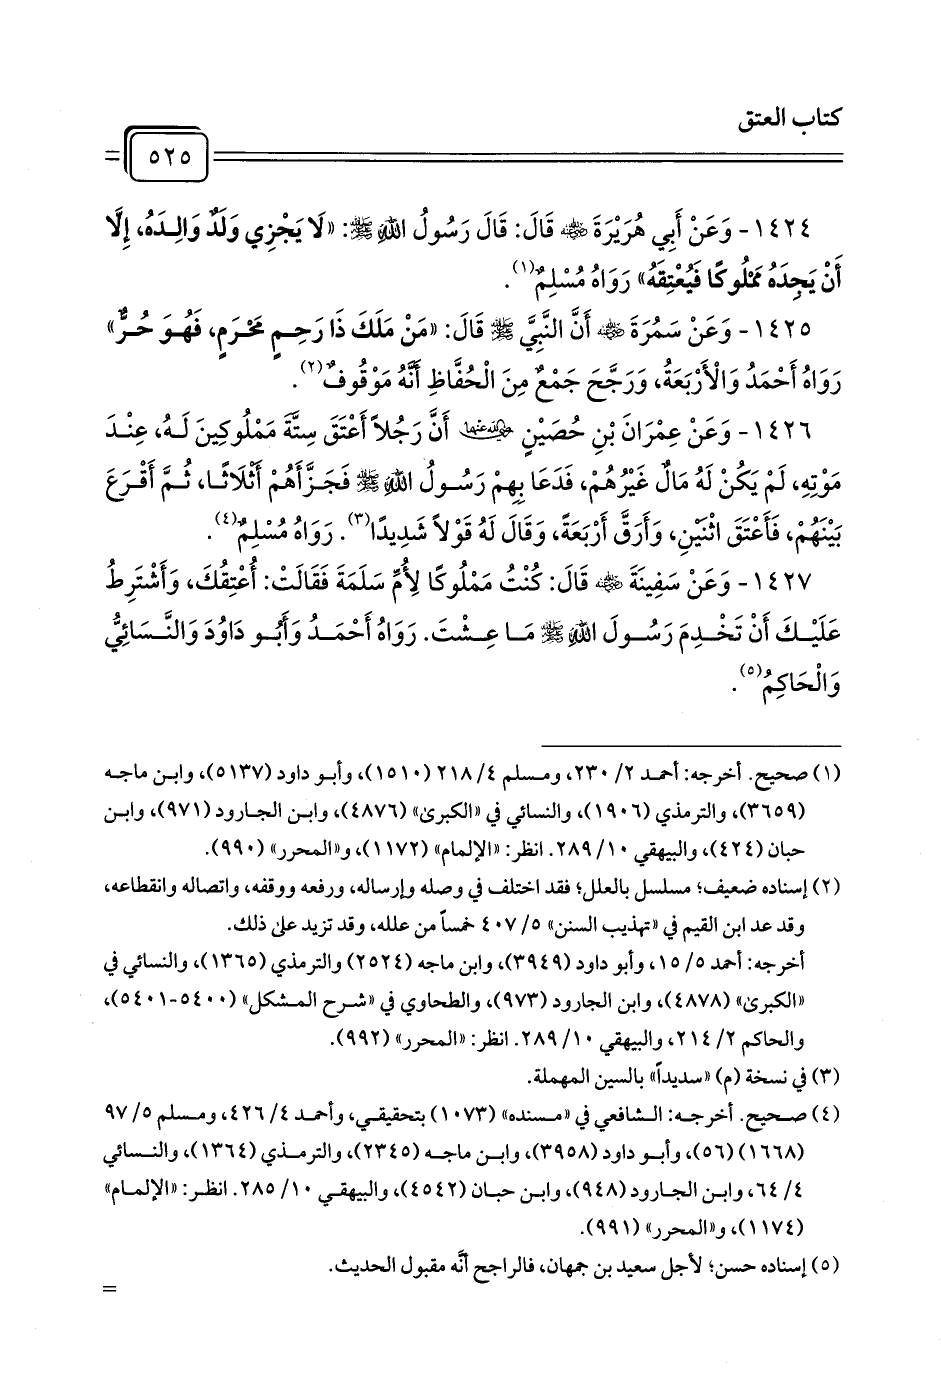 كتاب العتق
٥٢٥
١٤٢٤- وَعَنْ أَبِي هُرَيْرَةَ ﵁ قَالَ: قَالَ رَسُولُ اللهِ ﷺ: «لَا يَجْزِي وَلَدٌ وَالِدَهُ، إِلَّا
أَنْ يَجِدَهُ مَمْلُوكًا فَيُعْتِقَهُ» رَوَاهُ مُسْلِمٌ(١).
١٤٢٥- وَعَنْ سَمُرَةَ ﵁ أَنَّ النَّبِيَّ ﷺ قَالَ: «مَنْ مَلَكَ ذَا رَحِمٍ مَحْرَمٍ، فَهُوَ حُرٌّ»
رَوَاهُ أَحْمَدُ وَالْأَرْبَعَةُ، وَرَجَّحَ جَمْعٌ مِنَ الْحُفَّاظِ أَنَّهُ مَوْقُوفٌ(٢).
١٤٢٦- وَعَنْ عِمْرَانَ بْنِ حُصَيْنٍ ﵄ أَنَّ رَجُلاً أَعْتَقَ سِتَّةَ مَمْلُوكِينَ لَهُ، عِنْدَ
مَوْتِهِ، لَمْ يَكُنْ لَهُ مَالٌ غَيْرُهُمْ، فَدَعَا بِهِمْ رَسُولُ اللهِ ﷺ فَجَزَّأَهُمْ أَثْلَاثًا، ثُمَّ أَقْرَعَ
بَيْنَهُمْ، فَأَعْتَقَ اثْنَيْنِ، وَأَرَقَّ أَرْبَعَةً، وَقَالَ لَهُ قَوْلاً شَدِيدًا(٣). رَوَاهُ مُسْلِمٌ(٤).
١٤٢٧- وَعَنْ سَفِينَةَ ﵁ قَالَ: كُنْتُ مَمْلُوكًا لِأُمِّ سَلَمَةَ فَقَالَتْ: أُعْتِقُكَ، وَأَشْتَرِطُ
عَلَيْكَ أَنْ تَخْدِمَ رَسُولَ اللهِ ﷺ مَا عِشْتَ. رَوَاهُ أَحْمَدُ وَأَبُو دَاوُدَ وَالنَّسَائِيُّ
وَالْحَاكِمُ(٥).
(١) صحيح. أخرجه: أحمد ٢/ ٢٣٠، ومسلم ٤/ ٢١٨ (١٥١٠)، وأبو داود (٥١٣٧)، وابن ماجه
(٣٦٥٩)، والترمذي (١٩٠٦)، والنسائي في «الكبرىٰ» (٤٨٧٦)، وابن الجارود (٩٧١)، وابن
حبان (٤٢٤)، والبيهقي ١٠/ ٢٨٩. انظر: «الإلمام» (١١٧٢)، و«المحرر» (٩٩٠).
(٢) إسناده ضعيف؛ مسلسل بالعلل؛ فقد اختلف في وصله وإرساله، ورفعه ووقفه، واتصاله وانقطاعه،
وقد عد ابن القيم في «تهذيب السنن» ٥/ ٤٠٧ خمساً من علله، وقد تزيد على ذلك.
أخرجه: أحمد ٥/ ١٥، وأبو داود (٣٩٤٩)، وابن ماجه (٢٥٢٤) والترمذي (١٣٦٥)، والنسائي في
«الكبرىٰ» (٤٨٧٨)، وابن الجارود (٩٧٣)، والطحاوي في «شرح المشكل» (٥٤٠٠-٥٤٠١)،
والحاكم ٢/ ٢١٤، والبيهقي ١٠/ ٢٨٩. انظر: «المحرر» (٩٩٢).
(٣) في نسخة (م) «سديداً» بالسين المهملة.
(٤) صحيح. أخرجه: الشافعي في «مسنده» (١٠٧٣) بتحقيقي، وأحمد ٤/ ٤٢٦، ومسلم ٥/ ٩٧
(١٦٦٨) (٥٦)، وأبو داود (٣٩٥٨)، وابن ماجه (٢٣٤٥)، والترمذي (١٣٦٤)، والنسائي
٤/ ٦٤، وابن الجارود (٩٤٨)، وابن حبان (٤٥٤٢)، والبيهقي ١٠/ ٢٨٥. انظر: «الإلمام»
(١١٧٤)، و«المحرر» (٩٩١).
(٥) إسناده حسن؛ لأجل سعيد بن جمهان، فالراجح أنَّه مقبول الحديث.
=